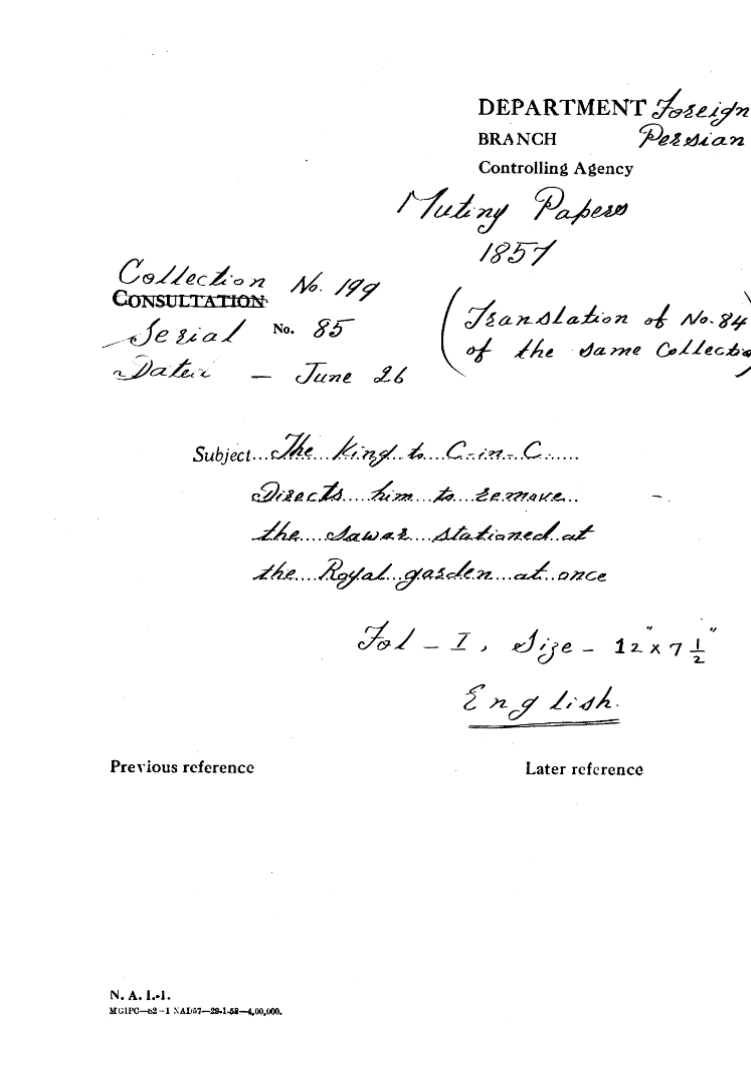 DEPARTMENT Foreign
BRANCH Persian
Controlling Agency
Mutiny Papers
1857
Collection No. 199
CONSULTATION
Serial No. 85
(Translation of No. 84
of the same Collectio)
Dated — June 26
Subject...The King to C-in-C......
Directs him to remove
the Sawar stationed at
the Royal garden at once
Fol - I, Size - 12" x 7 1/2"
English.
Previous reference
Later reference
N. A. I.-1.
MGIPC—S2—1 NAI/57—29-1-58—4,00,000.